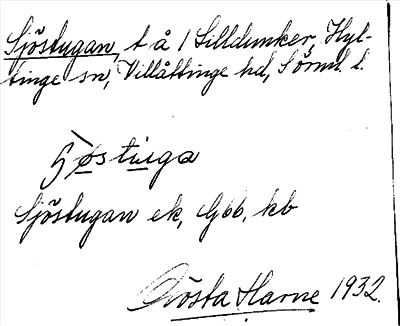 Sjöstugan, t å 1 Lilldunker, Hyl-
tinge sn, Villåttinge hd, Sörml. l.
Sjöstugan ek, Gbb, kb
Gösta Harne 1932.